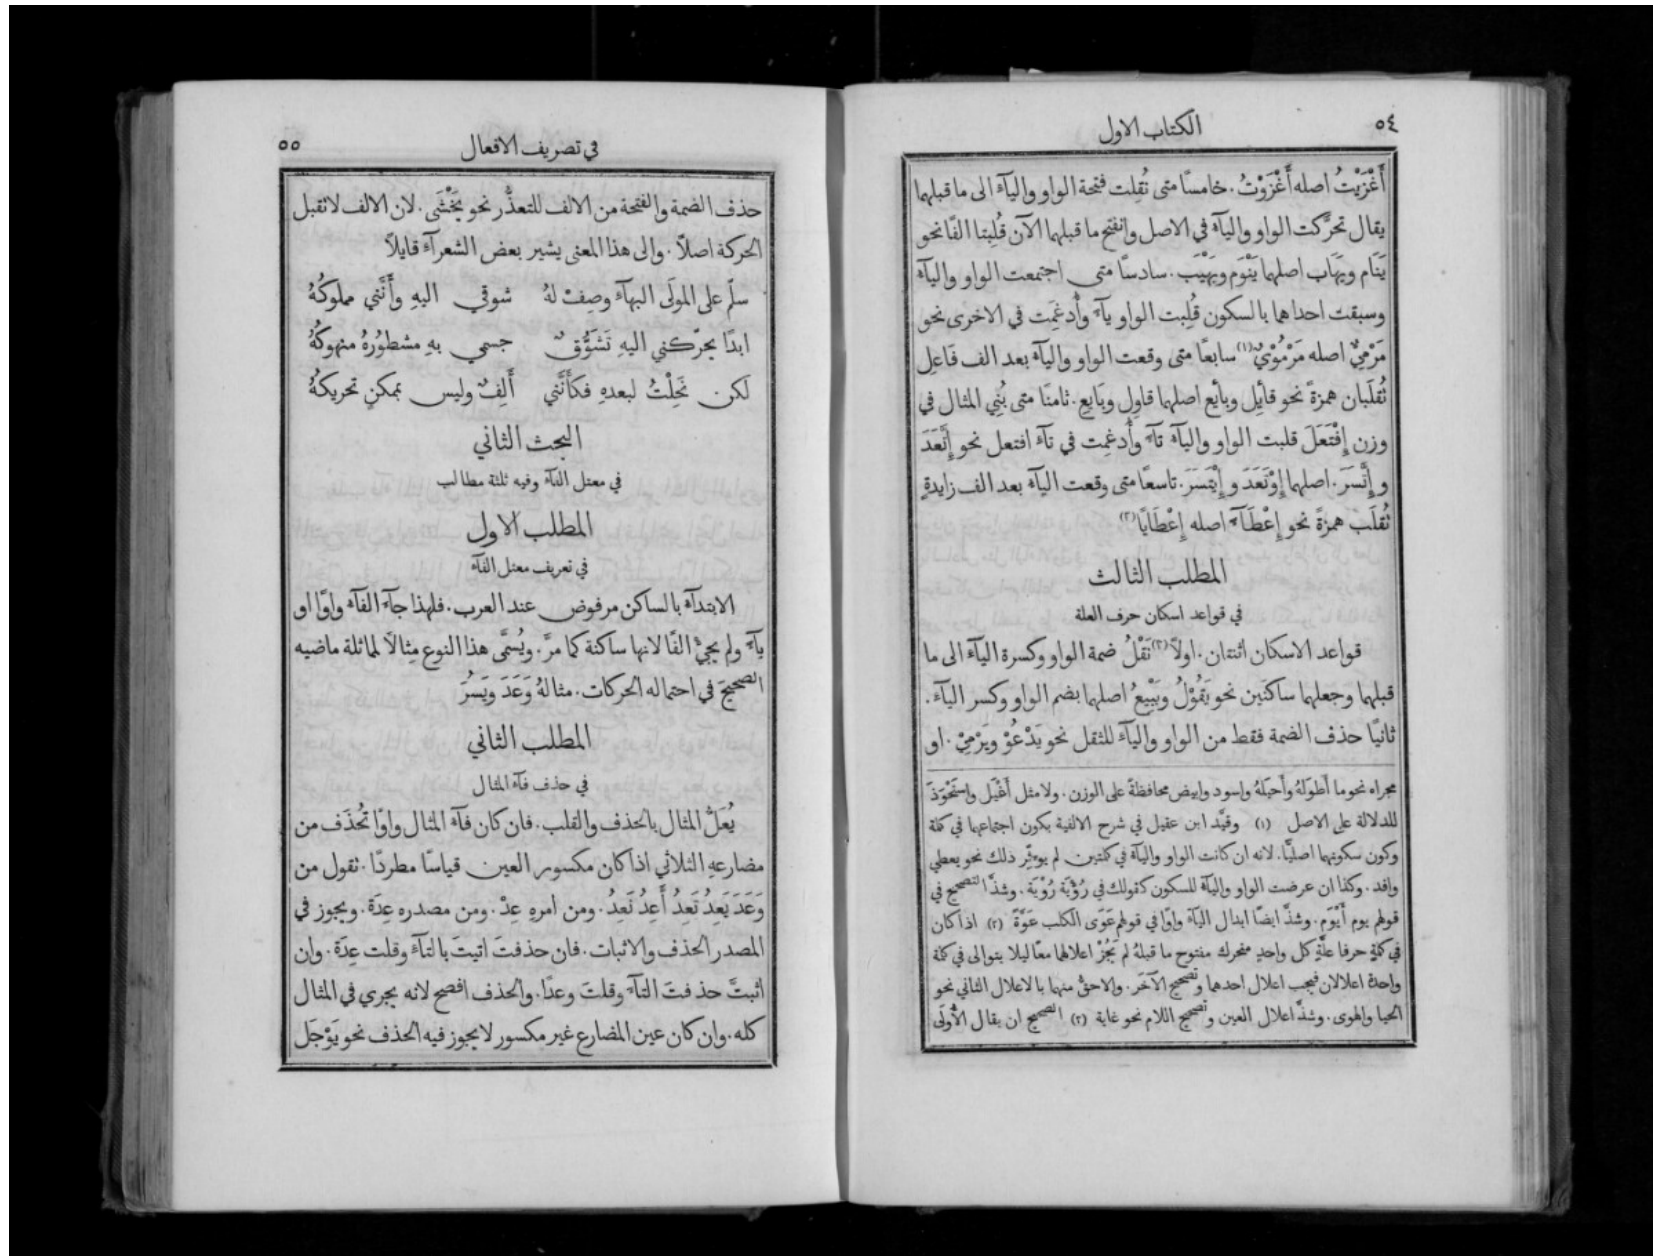 ٥٤
الكتاب الاول
أَغْزَيْتُ اصله أَغْزَوْتُ. خامسًا متى نُقِلت فتحة الواو واليآء الى ما قبلهما
يقال تحرَّكت الواو واليآء في الاصل وانفتح ما قبلهما الآن قُلِبتا الفًا نحو
يَنَام ويَهَاب اصلهما يَنْوَم ويَهْيَب. سادسًا متى اجتمعت الواو واليآء
وسبقت احداهما بالسكون قُلِبت الواو يآء وأُدغِمَت في الاخرى نحو
مَرْمِيٌّ اصله مَرْمُوْيٌ (١) سابعًا متى وقعت الواو واليآء بعد الف فَاعِل
تُقلَبان همزةً نحو قائِل وبائِع اصلهما قاوِل وبَايِع. ثامنًا متى بُنِي المثال في
وزن إِفْتَعَلَ قلبت الواو واليآء تآء وأُدغِمت في تآء افتعل نحو إِتَّعَدَ
و إِتَّسَرَ. اصلهما إِوْتَعَدَ و إِيْتَسَرَ. تاسعًا متى وقعت اليآء بعد الف زايدةٍ
تُقلَب همزةً نحو إِعْطَآء اصله إِعْطَايًا (٢)
المطلب الثالث
في قواعد اسكان حرف العلة
قواعد الاسكان اثنتان. اولًا (٣) نَقْلُ ضمة الواو وكسرة اليآء الى ما
قبلهما وجعلهما ساكنَين نحو يَقُوْلُ ويَبِيْعُ اصلهما بضم الواو وكسر اليآء.
ثانيًا حذف الضمة فقط من الواو واليآء للثقل نحو يَدْعُوْ ويَرْمِيْ. او
مجراه نحو ما أَطوَلَهُ وأَحيَلَهُ واسود وابيض محافظةً على الوزن. ولا مثل أَغْيَل واستَحْوَذَ
للدلالة على الاصل (١) وقيَّد ابن عقيل في شرح الالفية بكون اجتماعهما في كلمة
وكون سكونهما اصليًّا. لانه ان كانت الواو واليآء في كلمتين لم يوءثِّر ذلك نحو يعطي
وافد. وكذا ان عرضت الواو واليآء للسكون كقولك في رُؤْيَة رُوْيَة. وشذَّ التصحيح في
قولهم يوم أَيْوَم. وشذَّ ايضًا ابدال اليآء واوًا في قولهم عَوَى الكلب عَوَّةً (٢) اذا كان
في كلمةٍ حرفا علَّةٍ كل واحدٍ متحرك مفتوح ما قبلهُ لم يَجُزْ اعلالهما معًا ليلا يتوالى في كلمة
واحدة اعلالان فيجب اعلال احدهما وتصحيح الآخر. والاحقُّ منهما بالاعلال الثاني نحو
الحيا والهوى. وشذَّ اعلال العين وتصحيح اللام نحو غاية (٣) الصحيح ان يقال الأُولَى
في تصريف الافعال
٥٥
حذف الضمة والفتحة من الالف للتعذُّر نحو يَخْشَى. لان الالف لا تقبل
الحركة اصلًا. والى هذا المعنى يشير بعض الشعرآء قايلًا
سلّم على المولَى البهآء وصِفْ لهُ شوقي اليهِ وأَنَّني مملوكُهُ
ابدًا يحرّكني اليهِ تَشَوُّقٌ جسمي بهِ مشطُورُهُ منهوكُهُ
لكن نَحِلْتُ لبعدهِ فكأَنَّني أَلِفٌ وليس بممكنٍ تحريكهُ
البحث الثاني
في معتل الفآء وفيه ثلثة مطالب
المطلب الاول
في تعريف معتل الفآء
الابتدآء بالساكن مرفوض عند العرب. فلهذا جآء الفآء واوًا او
يآء ولم يجئْ الفًا لانها ساكنة كما مرَّ. ويُسَمَّى هذا النوع مِثالًا لماثلة ماضيه
الصحيحَ في احتماله الحركات. مثالهُ وَعَدَ ويَسُرَ
المطلب الثاني
في حذف فآء المثال
يُعَلُّ المثال بالحذف والقلب. فان كان فآء المثال واوًا تُحذَف من
مضارعهِ الثلاثي اذا كان مكسور العين قياسًا مطردًا. تقول من
وَعَدَ يَعِدُ تَعِدُ أَعِدُ نَعِدُ. ومن امرهِ عِدْ. ومن مصدره عِدَة. ويجوز في
المصدر الحذف والاثبات. فان حذفتَ اتيتَ بالتآء وقلت عِدَة. وان
اثبتَّ حذفتَ التآء وقلتَ وعدًا. والحذف افصح لانه يجري في المثال
كله. وان كان عين المضارع غير مكسور لا يجوز فيه الحذف نحو يَوْجَل